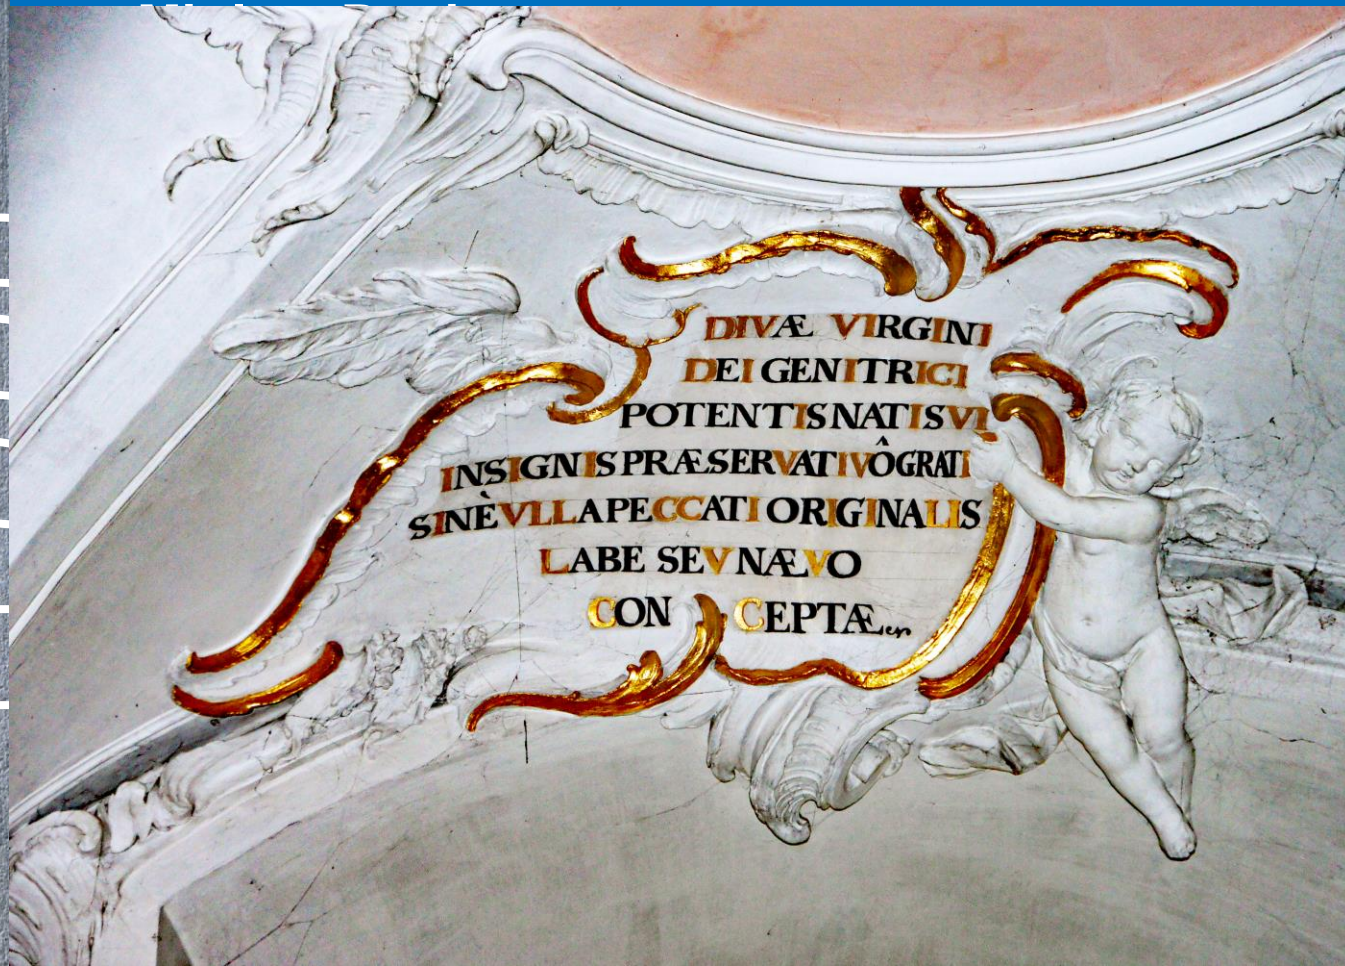 DIVÆ VIRGINI
DEI GENITRICI
POTENTIS NATIS VI
INSIGNIS PRÆSERVATIVÔ GRATI
SINÈ VLLA PECCATI ORIGINALIS
LABE SEV NÆVO
CONCEPTÆ